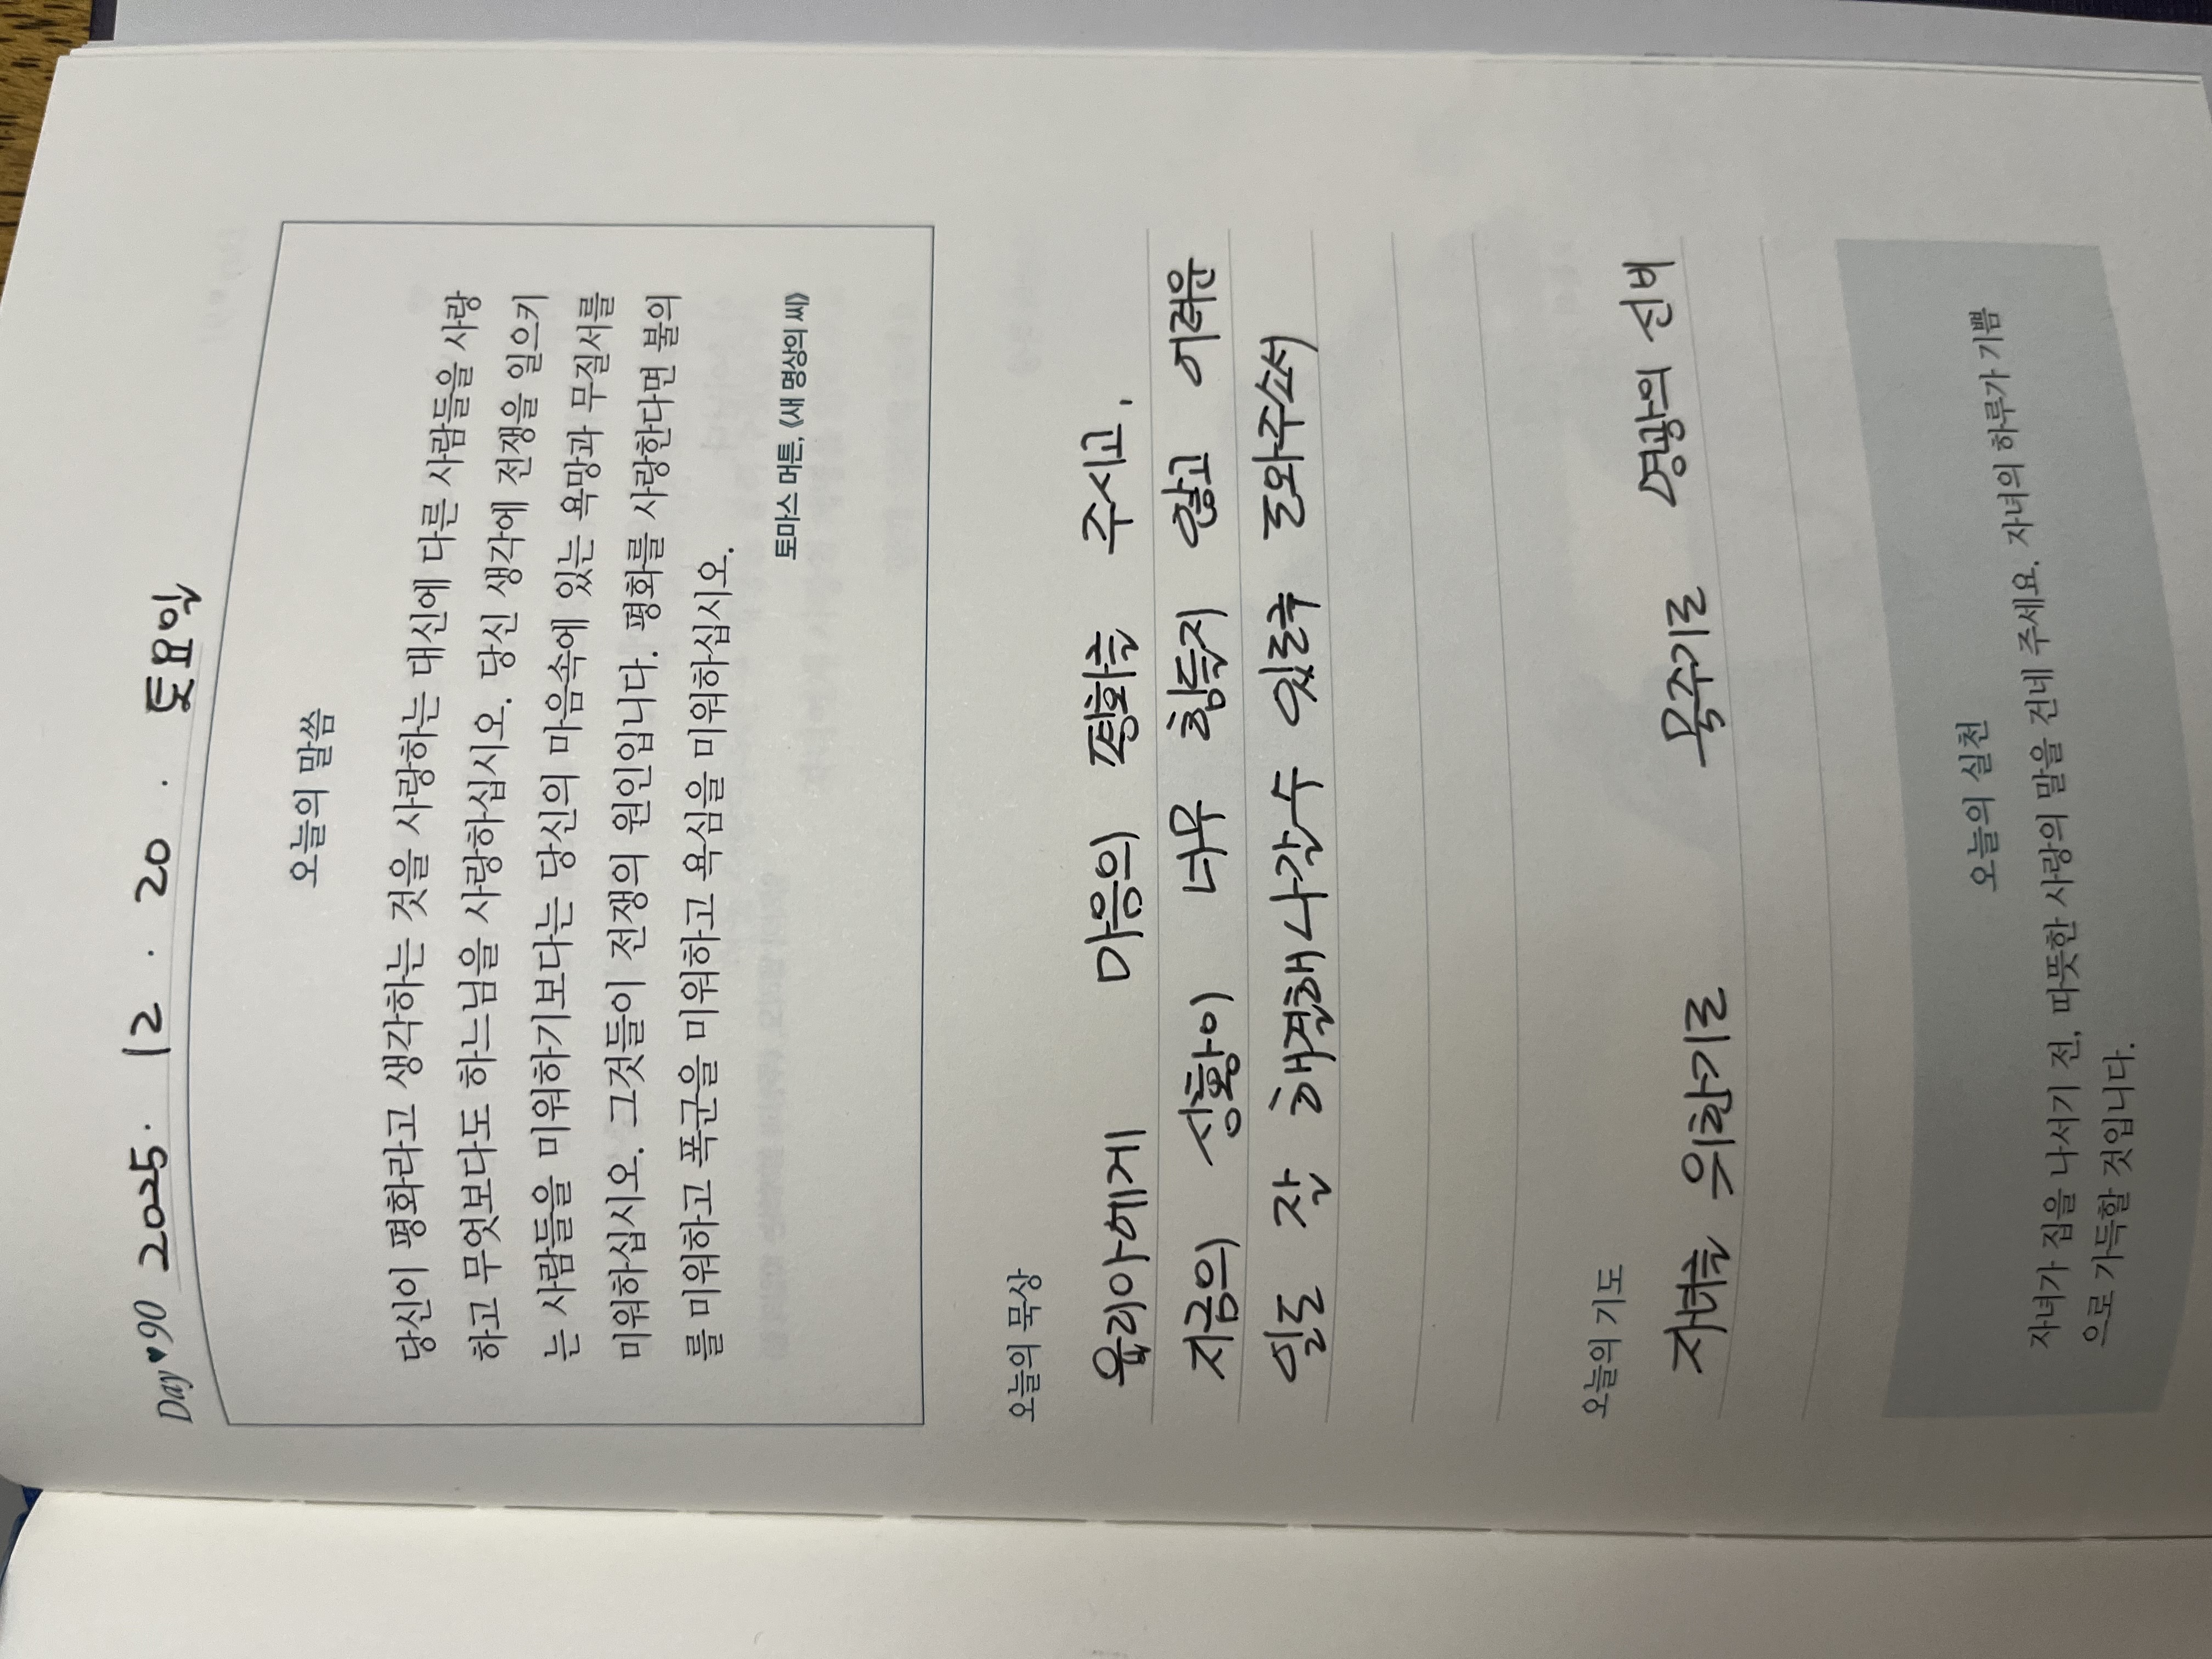 Day♥90 2025. 12. 20. 토요일
오늘의 말씀
당신이 평화라고 생각하는 것을 사랑하는 대신에 다른 사람들을 사랑
하고 무엇보다도 하느님을 사랑하십시오. 당신 생각에 전쟁을 일으키
는 사람들을 미워하기보다는 당신의 마음속에 있는 욕망과 무질서를
미워하십시오. 그것들이 전쟁의 원인입니다. 평화를 사랑한다면 불의
를 미워하고 폭군을 미워하고 욕심을 미워하십시오.
토마스 머튼, 《새 명상의 씨》
오늘의 묵상
율리아에게 마음의 평화를 주시고,
지금의 상황이 너무 힘들지 않고 어려운
일도 잘 해결해나갈수 있도록 도와주소서
오늘의 기도
자녀를 위한기도 묵주기도 영광의 신비
오늘의 실천
자녀가 집을 나서기 전, 따뜻한 사랑의 말을 건네 주세요. 자녀의 하루가 기쁨
으로 가득할 것입니다.